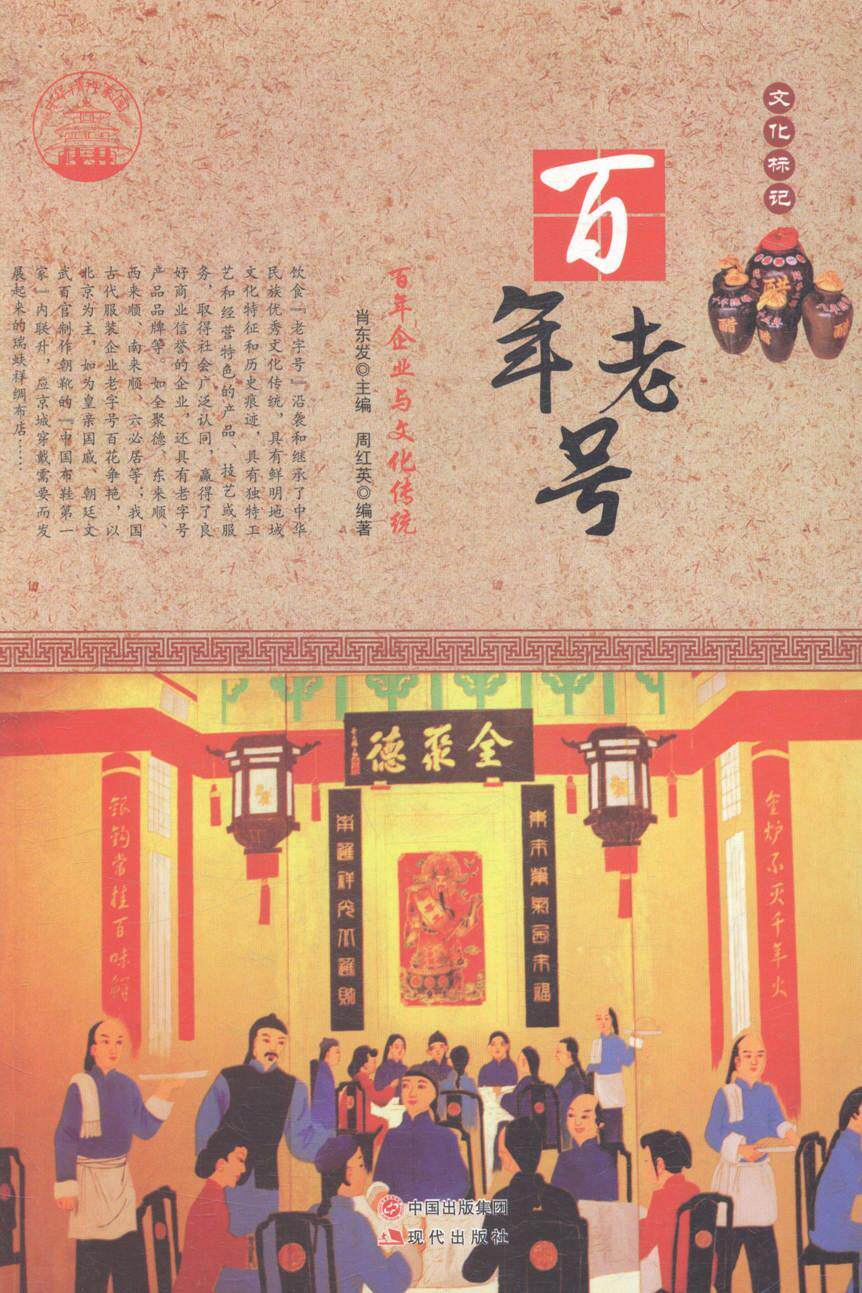 文化标记
百年老号
醋
醋
醋
百年企业与文化传统
肖东发◎主编 周红英◎编著
饮食“老字号”沿袭和继承了中华
民族优秀文化传统，具有鲜明地域
文化特征和历史痕迹，具有独特工
艺和经营特色的产品、技艺或服
务，取得社会广泛认同，赢得了良
好商业信誉的企业，还具有老字号
产品品牌等。如全聚德、东来顺、
西来顺、南来顺、六必居等；我国
古代服装企业老字号百花争艳，以
北京为主，如为皇亲国戚、朝廷文
武百官制作朝靴的“中国布鞋第一
家”内联升，应京城穿戴需要而发
展起来的瑞蚨祥绸布店……
全聚德
金炉不灭千年火
银钩常挂百味鲜
中国出版集团
现代出版社